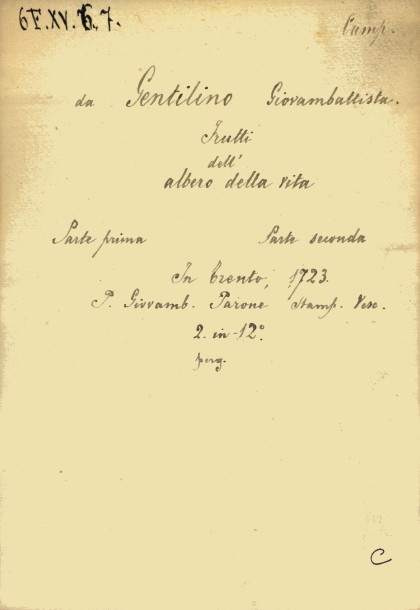 6F.XV.G.7.
Camp.
da Gentilino Giovambattista.
Frutti
dell'
albero della vita
Parte prima Parte seconda
In Trento, 1723.
P. Giovamb. Parone Stamp. Vesc.
2. in-12°
perg.
C